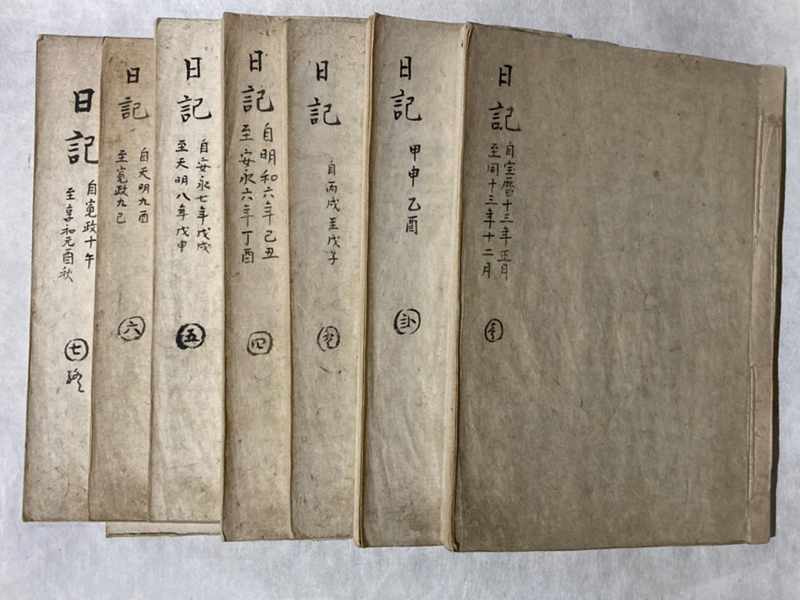 日記
自宝暦十三年正月
至同十三年十二月
壱
日記
甲申乙酉
弐
日記
自丙戌至戊子
日記
自明和六年己丑
至安永六年丁酉
四
日記
自安永七年戊戌
至天明八年戊申
五
日記
自天明九酉
至寛政九巳
六
日記
自寛政十午
至享和元酉秋
七
終